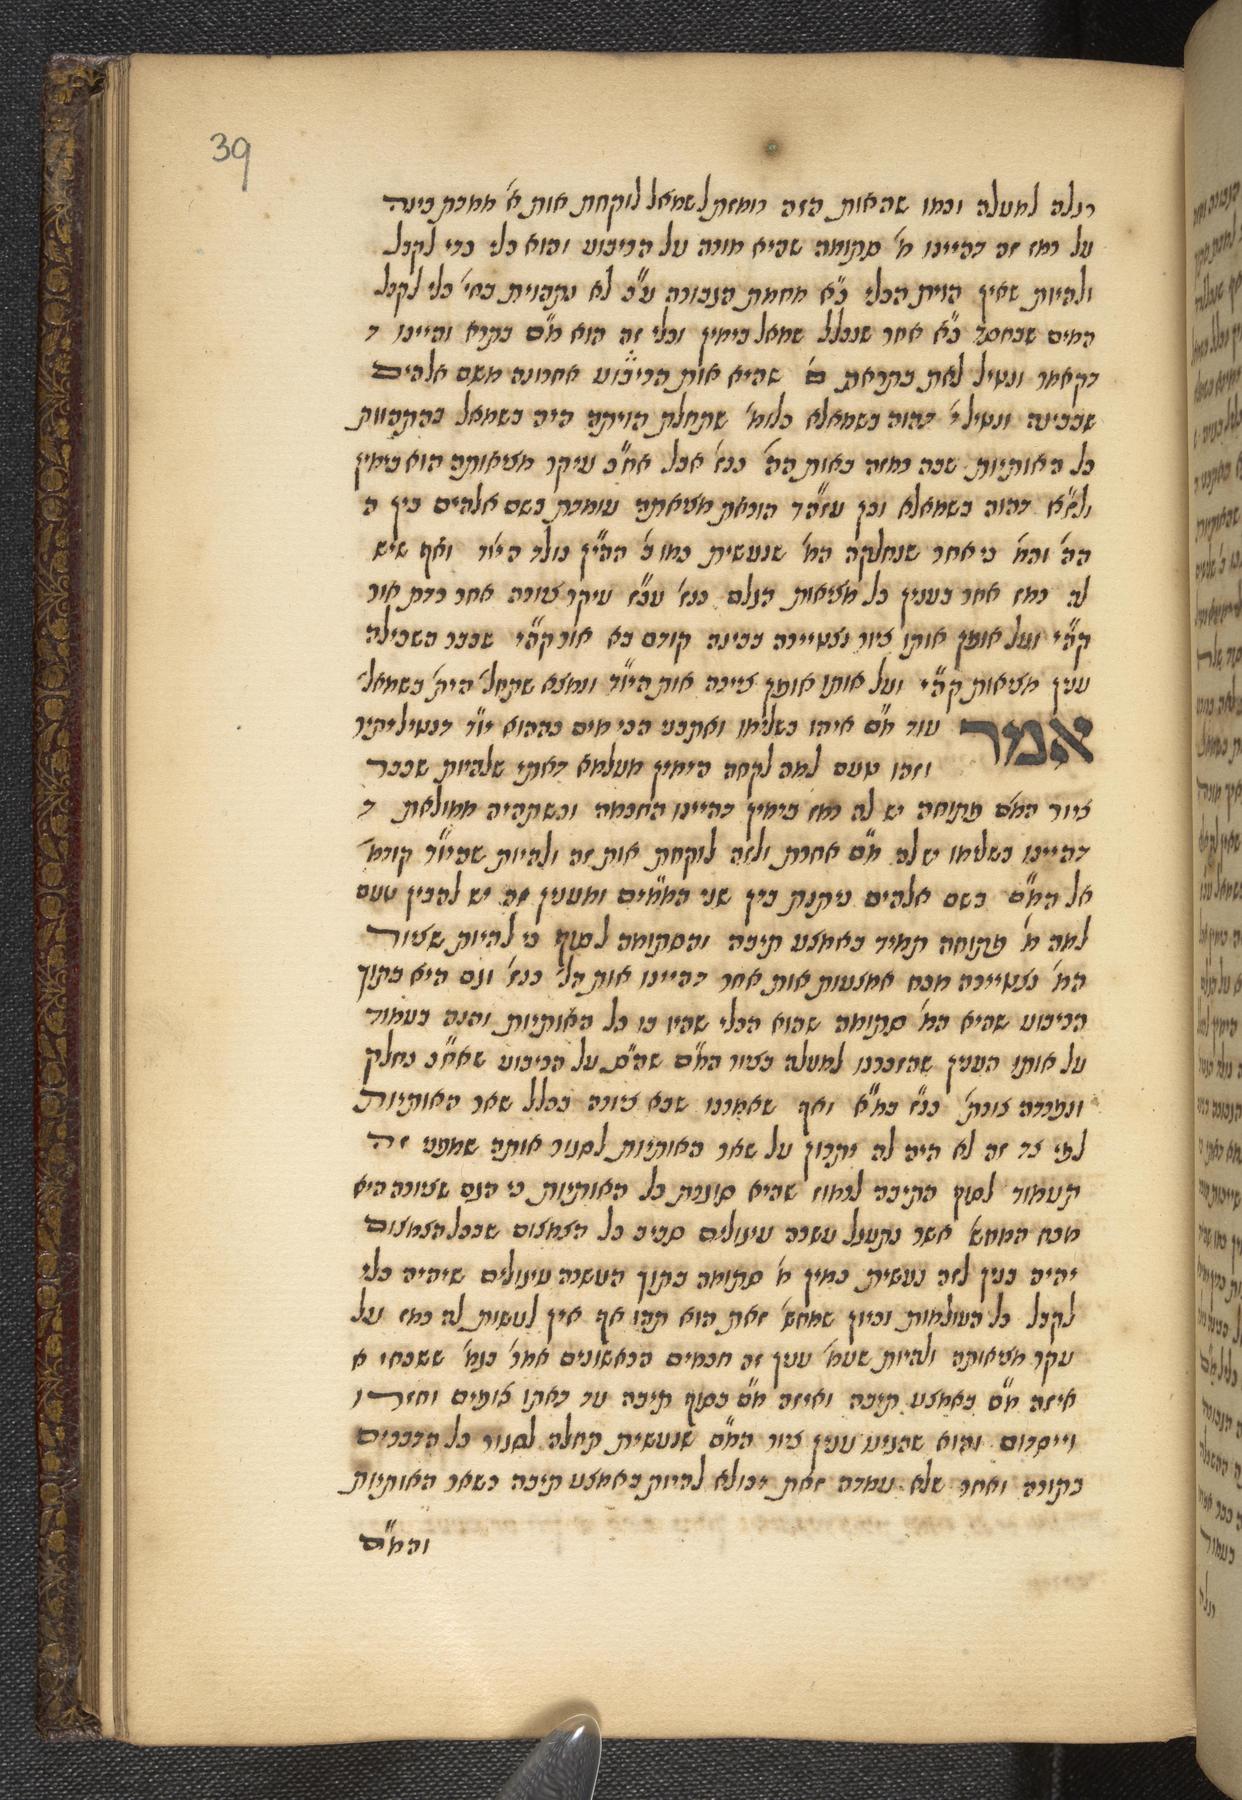 39
רגלה למעלה וכמו שהאות הזה רומזת לשמאל לוקחת אות א' ממרת בינה
על רמז זה דהיינו מ' סתומה שהיא מורה על הריבוע והוא כלי כדי לקבל
ולהיות שאין הוית הכלי כ"א מחמת הגבורה ע"כ לא נתהוית בחי' כלי לקבל
המים שבחסד כ"א אחר שנכלל שמאל בימין וכלי זה הוא מ"ם בקרא והיינו ד
דקאמר ונטיל לאת בתראה ם' שהיא אות הריבוע אחרונה משם אלהים
שבבינה ונטיל י' דהוה בשמאלא כלומ' שתחלת הויתה היה בשמאל בהתהוות
כל האותיות שבה רמזה באות הה' כנז' אבל אח"כ עיקר מציאותה הוא בימין
ולז"א דהוה בשמאלא וכן עז"הד הוראת מציאתה עומדת בשם אלהים בין ה
הה' והמ' כי אחר שנחלקה המ' שנעשית כמו ב' ההי"ן נולד היו"ד ואף שיש
לה רמז אחר בענין כל מציאות הגלם כנז' עכ"ז עיקר צורה אחר רדת אור
קה"י ועל אופן אותו ציור נצטיירה בבינה קודם בא אור קה"י שכבר השכילה
ענין מציאות קה"י ועל אותו אופן ציירה אות היו"ד ונמצא שתחל' הית' בשמאל
אמר עוד מ"ם איהו בשלימו ואתכנע הכי מים בההוא יו"ד דנטיל יתיר
וזהו טעם למה לקחה הימין מעלמא דאתי שלהיות שכבר
ציור המ"ם פתוחה יש לה רמז בימין דהיינו החכמה וכשתהיה ממולאת ד
דהיינו בשלימו יש לה מ"ם אחרת ולזה לוקחת אות זה ולהיות שהיו"ד קודמ'
אל המ"ם בשם אלהים ניתנת בין שני הממי"ם ומענין זה יש להבין טעם
למה מ' פתוחה תמיד באמצע תיבה והסתומה לסוף כי להיות שציור
המ' נצטיירה מכח אמצעות אות אחר דהיינו אות הל' כנז' וגם היא בתוך
הריבוע שהיא המ' סתומה שהוא הכלי שהיו בו כל האותיות והנה בעמוד
על אותו הענין שהזכרנו למעלה בציור המ"ם שה"ם על הריבוע שאח"כ נחלק
ונפרדה צורת' כנ"ז במ"א ואף שאמרנו שבא צורה בכלל שאר האותיות
לפי צד זה לא היה לה יתרון על שאר האותיות לסגור אותה שמפני זה
תעמוד לסוף התיבה לרמוז שהיא סוגרת כל האותיות כי הגם שצורה היא
מכח המחש' אשר נתעגל עשרה עיגולים סביב כל הצמצום שבכל הצמצום
יהיה בנין לזה נעשית כמין מ' סתומה בתוך העשרה עיגולים שיהיה כלי
לקבל כל העולמות וכיון שמחש' זאת הוא תהו אף אין לעשות לה רמז על
עקר מציאותה ולהיות שעמ' ענין זה חכמים הראשונים אמר' בגמ' ששכחו א
איזה מ"ם באמצע תיבה ואיזה מ"ם בסוף תיבה עד דאתו צופים וחזרו
וייסדום והוא שהגיע ענין ציור המ"ם שנעשית תחלה לסגור כל הדברים
בתורה ואחר שלא עמדה זאת יכולא להיות באמצע תיבה כשאר האותיות
והמ"ם